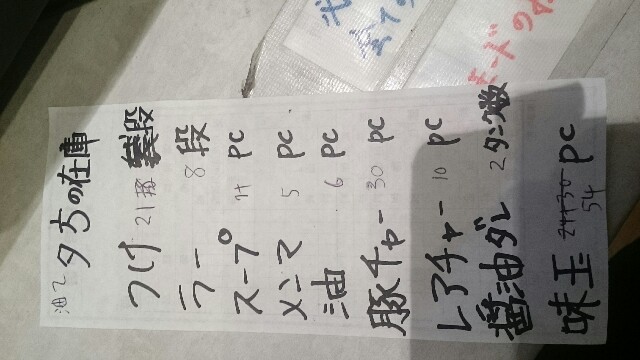 油て
夕方の在庫
つけ 21 豚 段
ラー 8 段
スープ pc
メンマ 5 pc
油 6 pc
豚チャー 30 pc
レアチャー 10 pc
醤油ダレ 2 タンク数
味玉 24+30 54 pc